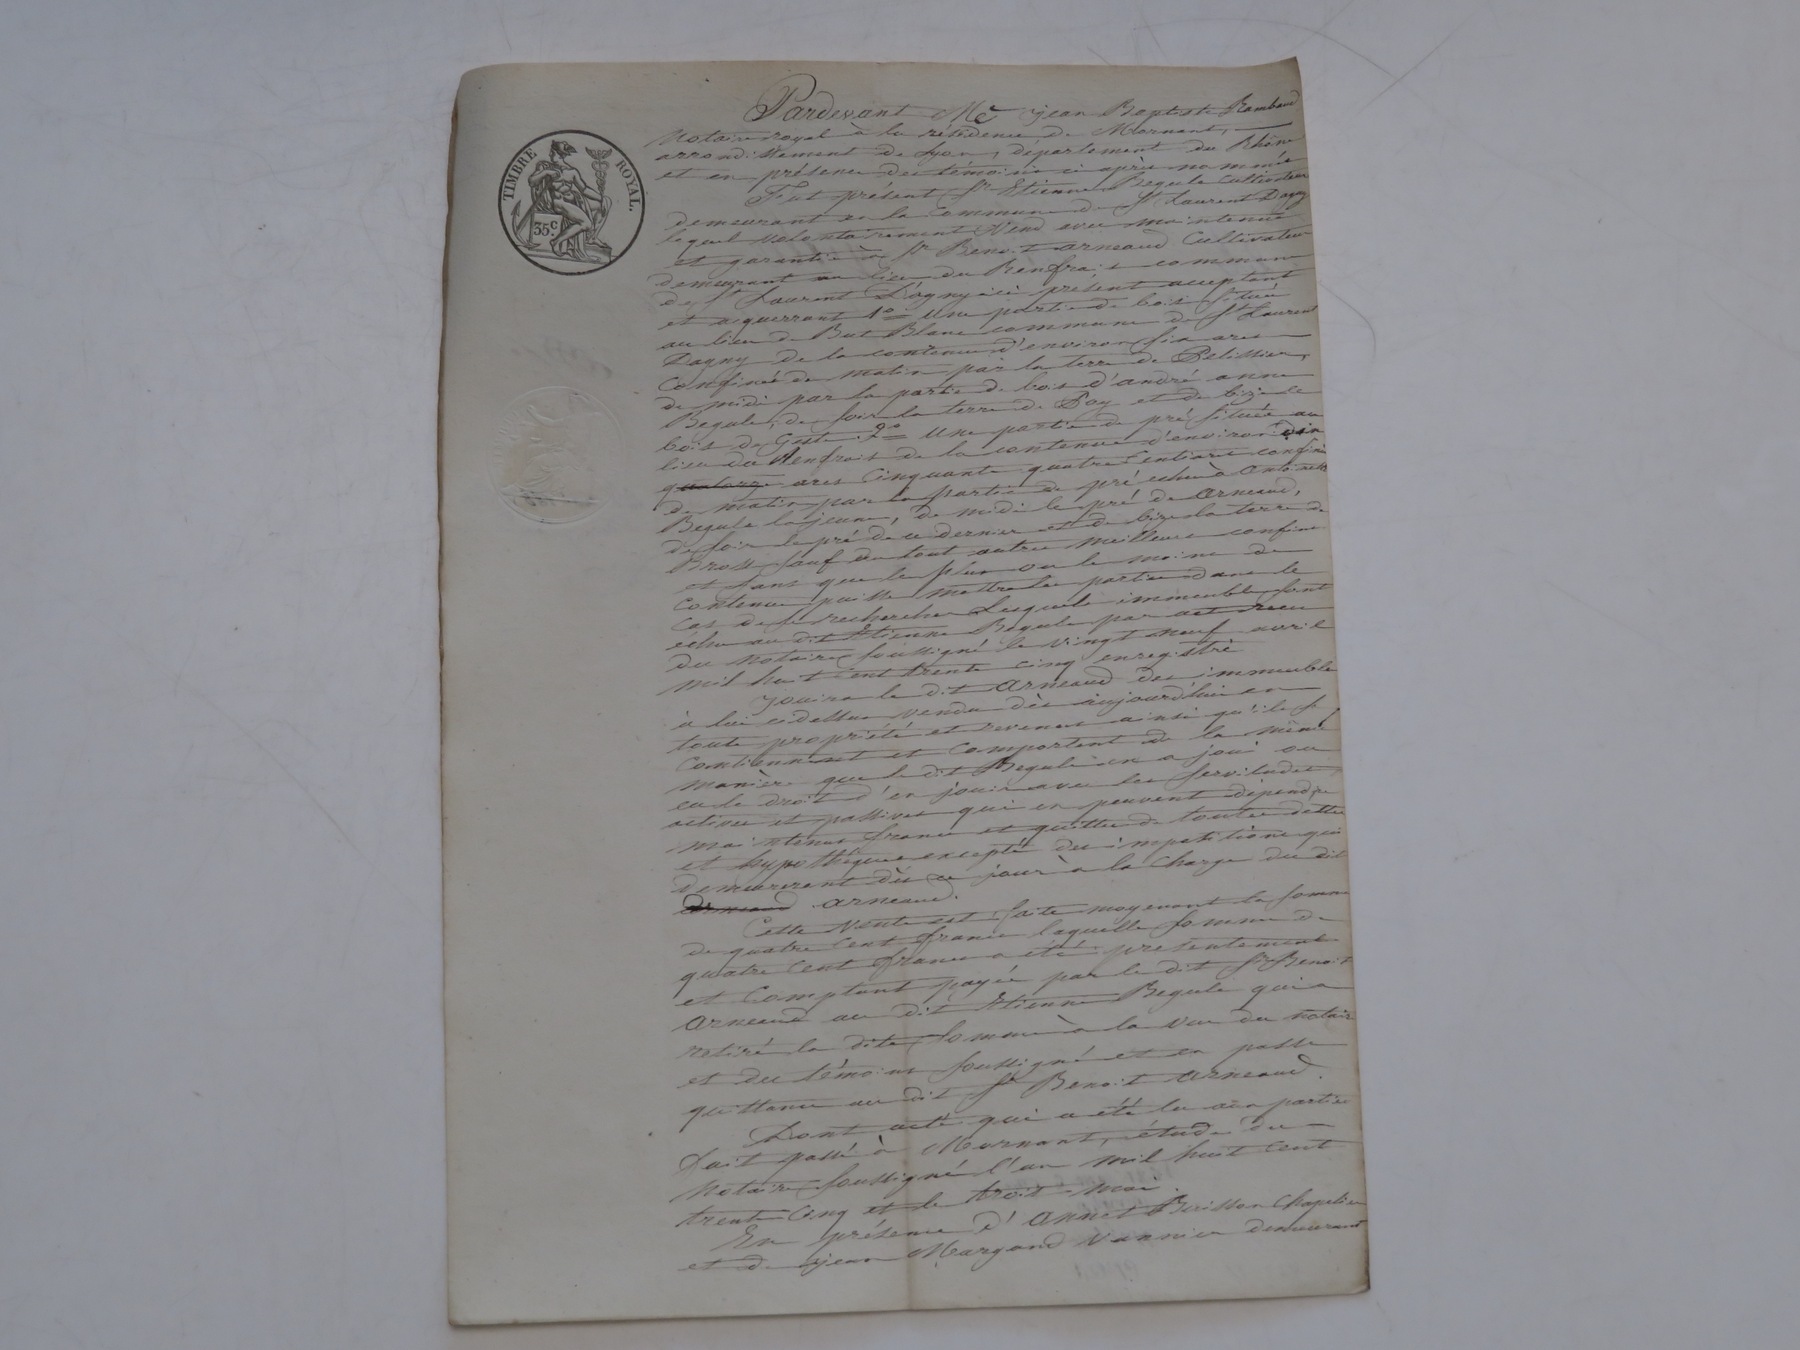 TIMBRE ROYAL.
35c.
Pardevant Me jean Baptiste Rambaud
Notaire royal à la résidence de Mornant,
arrondissement de Lyon, département du Rhône
et en présence des témoins ci après nommés
Fut présent Sr Etienne Begule Cultivateur
demeurant en la commune de St Laurent Dagny
lequel volontairement Vend avec maintenue
et garantie à Sr Benoit Arneaud Cultivateur
demeurant au lieu du Renfrait commune
de St Laurent D'agny ici présent acceptant
et acquerrant 1o Une partie de bois située
au lieu de But Blanc commune de St Laurent
Dagny de la contenue d'environ six ares
Confinée de matin par la terre de Pelissier,
de midi par la partie de bois d'andré anne
Begule, de soir la terre de Pay et de bize le
bois de Geste. 2o Une partie de pré située au
lieu du Renfrait de la contenue d'environ dix
quatorze ares cinquante quatre Centiare confiné
de matin par la partie de pré échu à Antoinette
Begule la jeune, de midi le pré de Arneaud,
de soir le pré de ce dernier et de bize la terre de
Bross sauf de tout autres meilleurs confins
et sans que le plus ou le moins de
contenue puisse mettre les parties dans le
cas de se rechercher Lesquels immeubles sont
échu au dit Etienne Begule par act recu
du notaire soussigné le vingt neuf avril
mil huit cent trente cinq enregistré
jouira le dit Arneaud des immeuble
à lui cidessus vendu dès aujourd'hui en
toute propriété et revenus ainsi qu'ils se
Contiennent et Comportent de la même
manière que le dit Begule en a joui ou
eu le droit d'en jouir avec les servitudes
actives et passives qui en peuvent dépendre
maintenus francs et quittes de toutes dettes
et hypothéques excepté des impositions qui
demeurerent dès ce jour à la charge du dit
Arneaud Arneaud.
Cette Vente est faite moyenant la somme
de quatre Cent francs laquelle somme de
quatre Cent francs a été présentement
et Comptant payée par le dit Sr Benoit
Arneaud au dit Etienne Begule qui a
retiré la dite Somme à la vue du notaire
et des témoins soussigné et en passe
quittance au dit Sr Benoit Arneaud.
Dont acte qui a été lu aux parties
Fait passé à Mornant, étude du
Notaire soussigné l'an mil huit Cent
trente Cinq et le trois mai
En présence d'Annet Buisson Chapelier
et de jean Margand Vannier demeurant